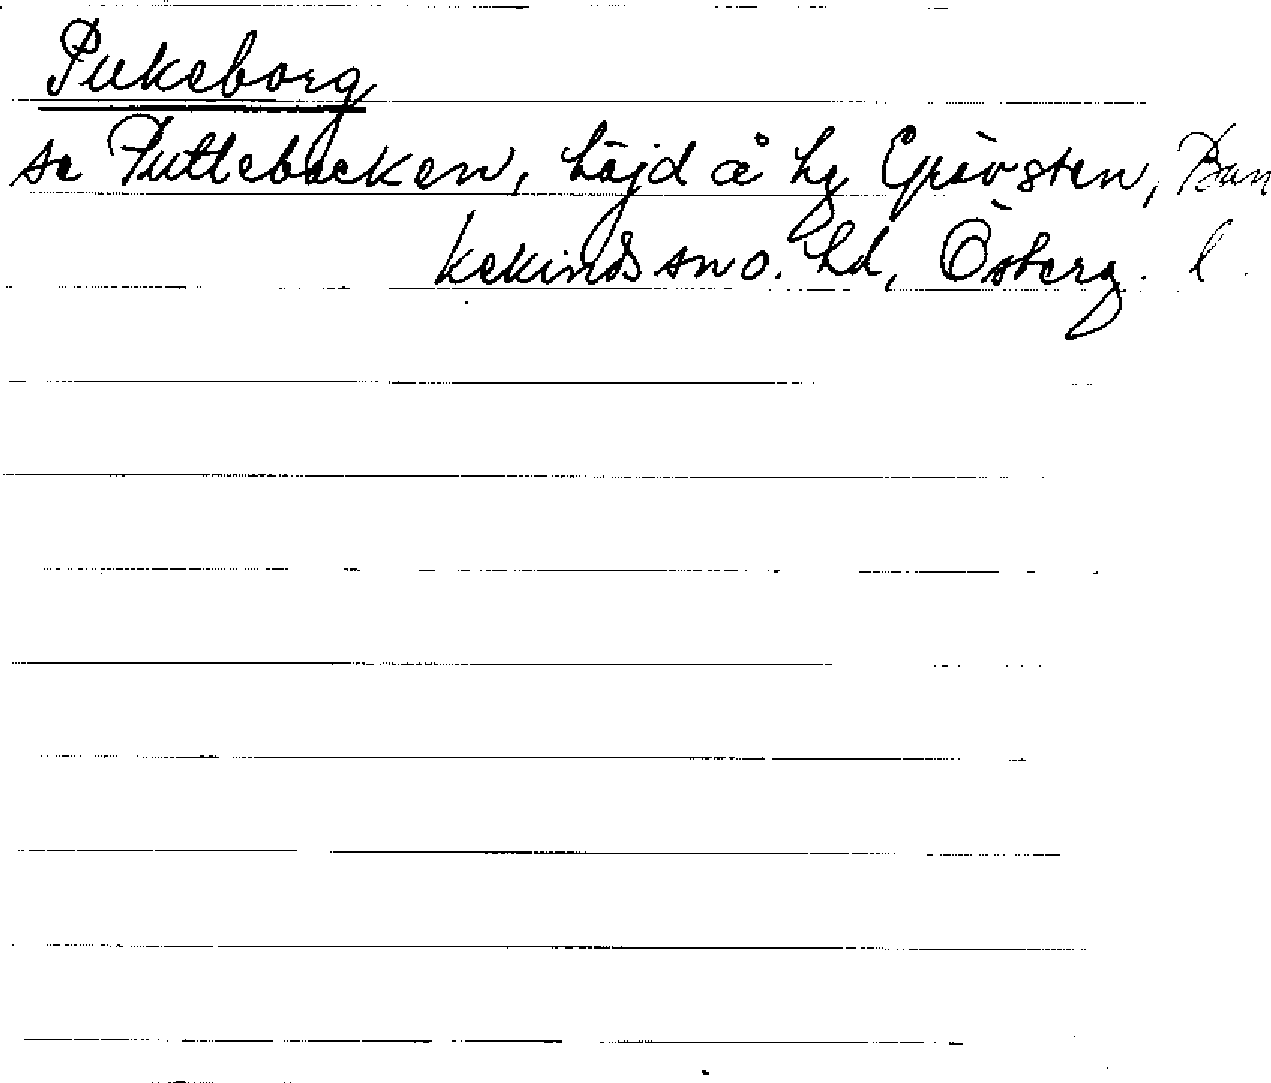 Pukeborg
se Puttebacken, höjd å hg Grävsten, Ban
kekinds sn o. hd, Österg. l.